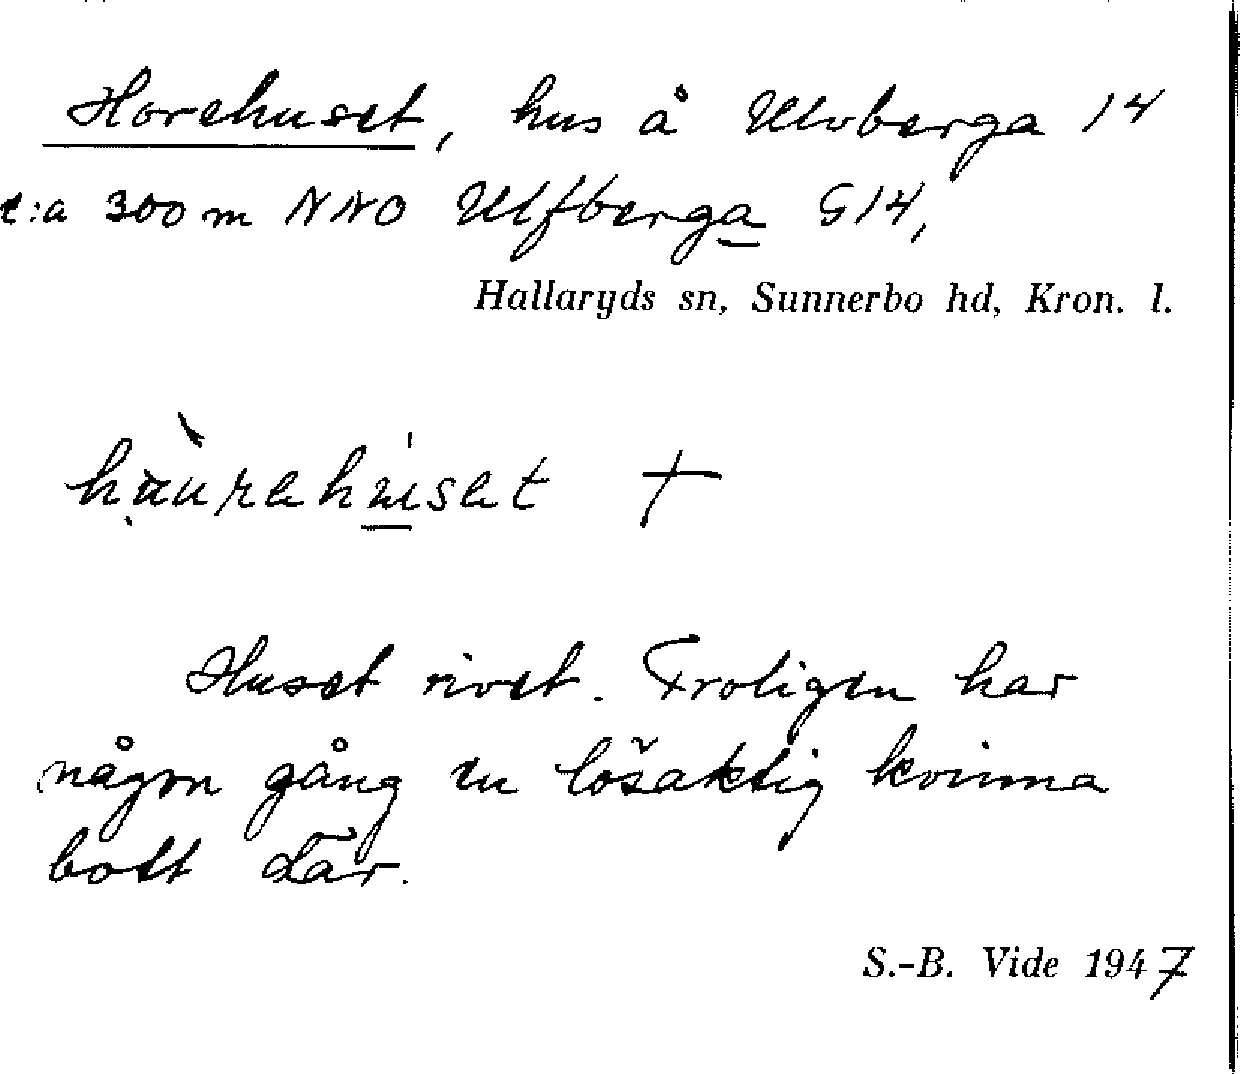 Horehuset, hus å Ulvberga 14
c:a 300 m NNO Ulfberga G 14,
Hallaryds sn, Sunnerbo hd, Kron. l.
hàurahu̲sat †
Huset rivet. Troligen har
någon gång en lösaktig kvinna
bott där.
S.-B. Vide 1947